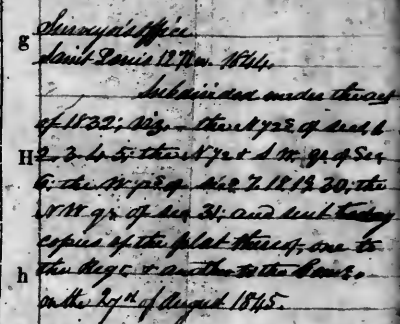 g Surveyor's Office
Saint Louis 12 Nov. 1844.
Subdivided under the act
of 1832; viz. the N½ of secs 1.
H 2. 3. 4. 5; the N½ & S.W. qr. of Sec
6; the W½ of secs 7. 18. 19. 30; the
N.W. qr. of sec 31; and sent today
copies of the plat thereof, one to
h the Regr. & another to the Recr.
on the of August 1845.